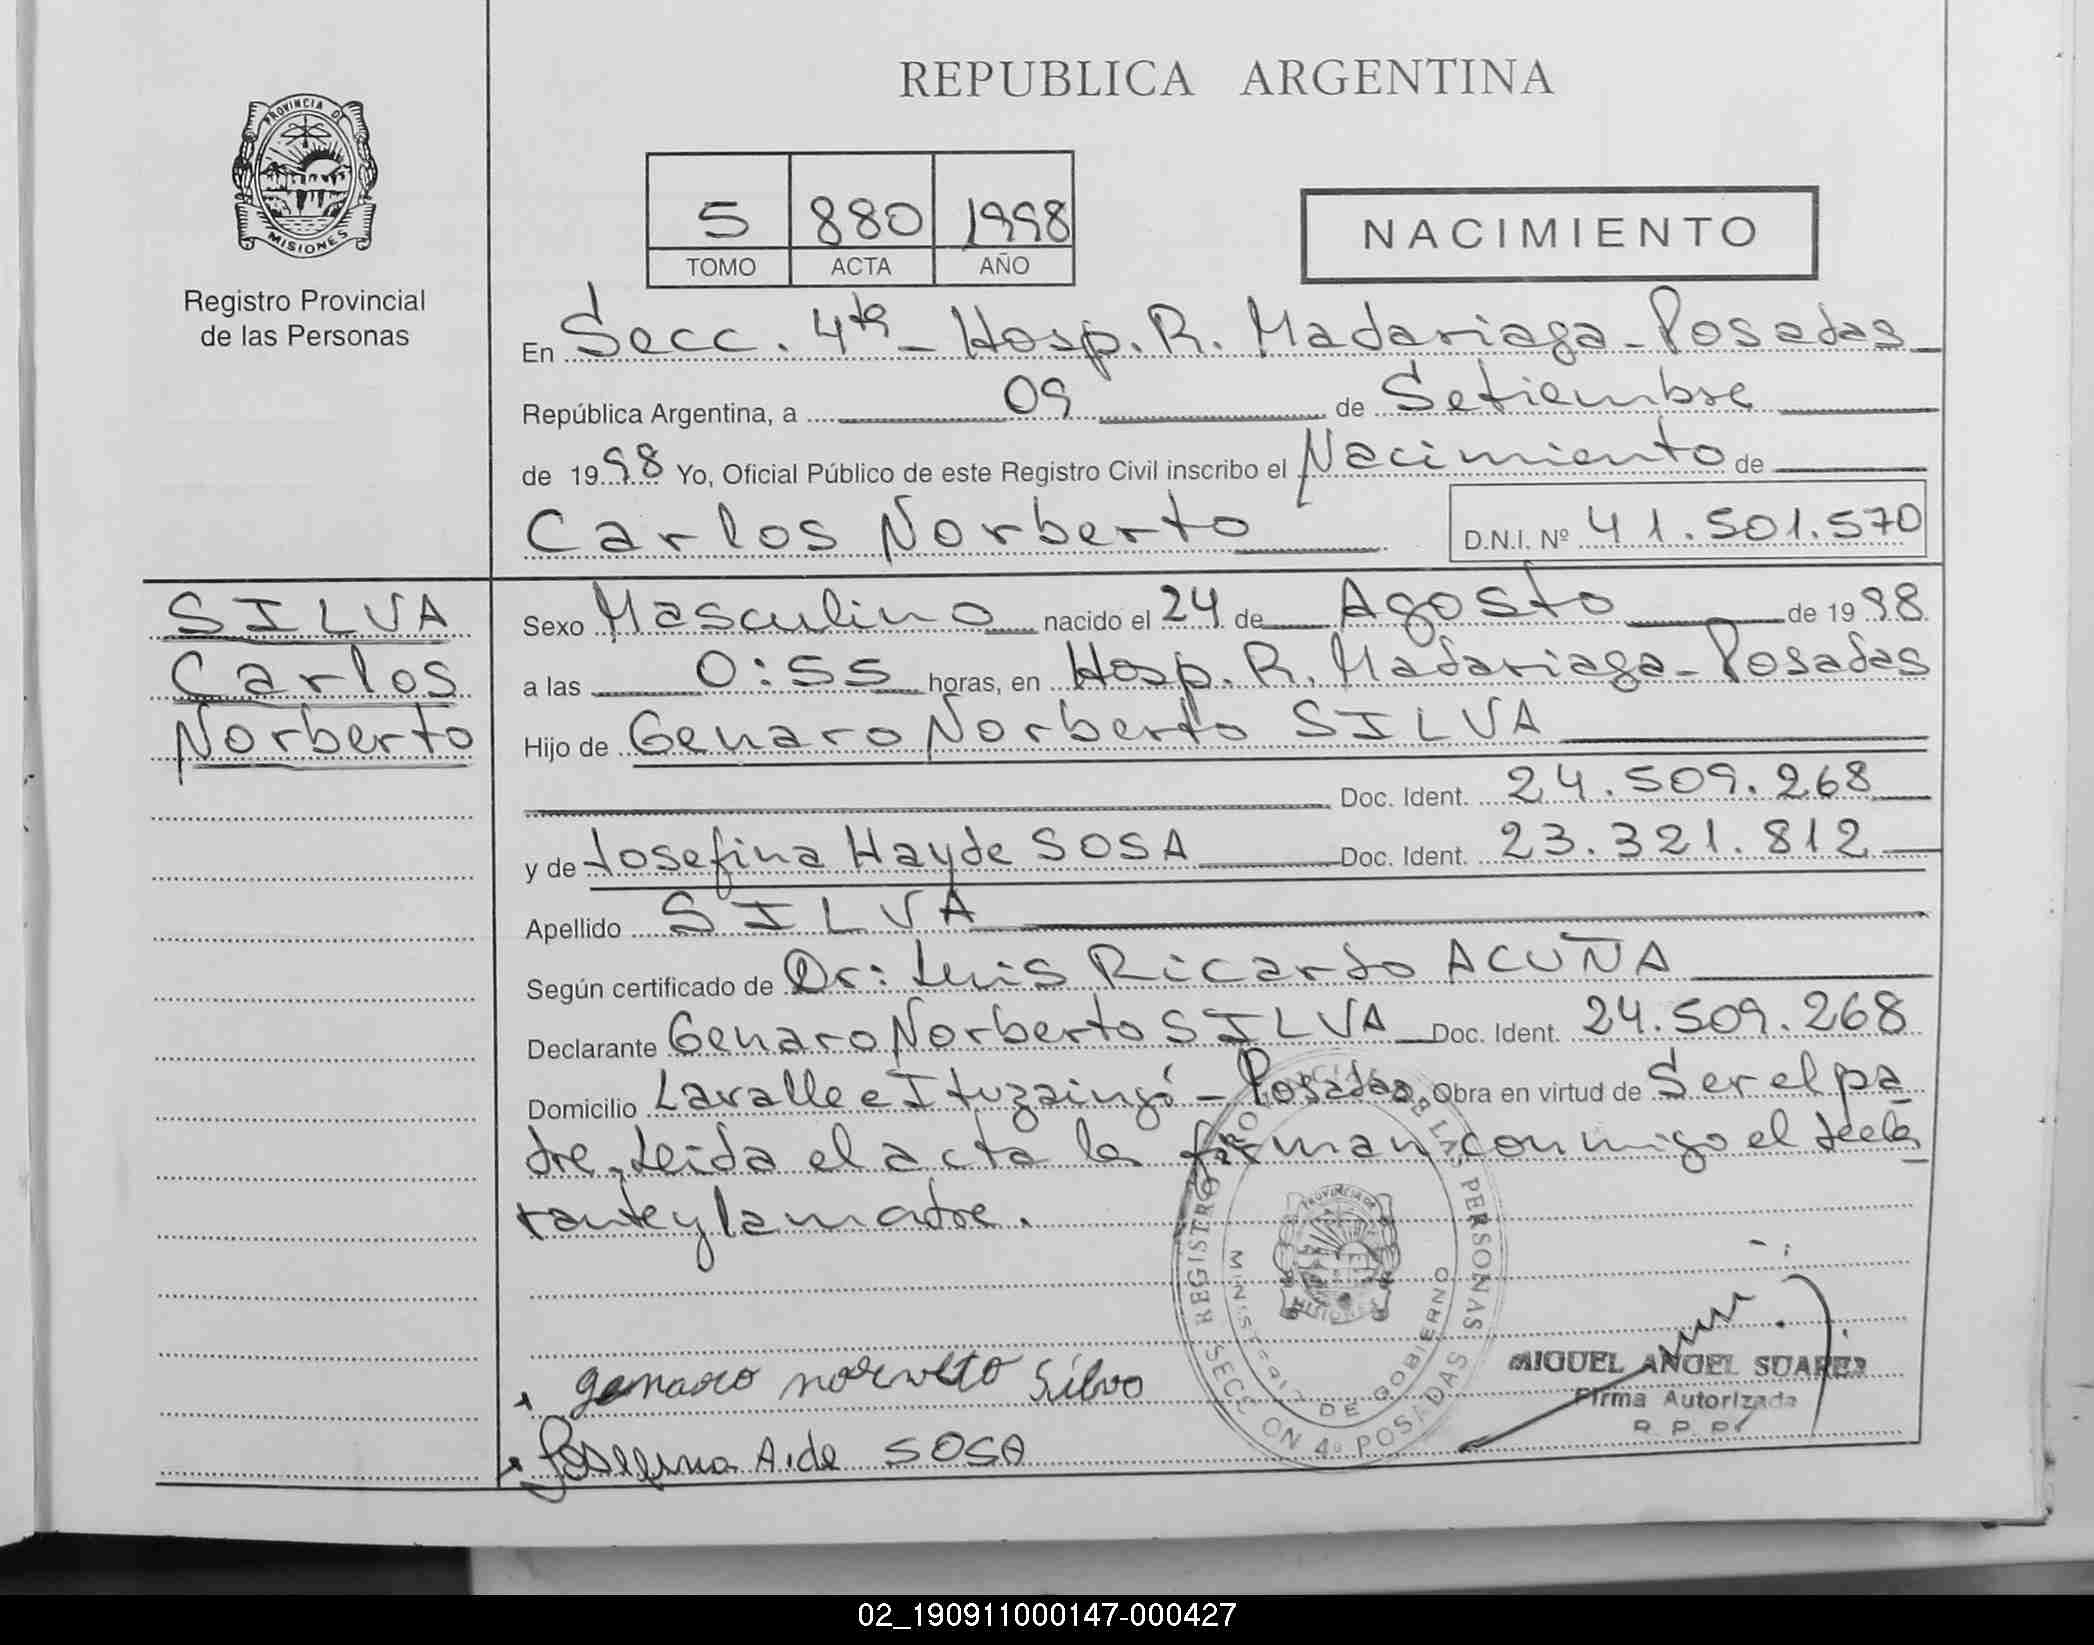 REPUBLICA ARGENTINA
PROVINCIA DE
MISIONES
Registro Provincial
de las Personas
5 880 1998
TOMO ACTA AÑO
NACIMIENTO
En Secc. 4ta - Hosp. R. Madariaga - Posadas
República Argentina, a 09 de Setiembre
de 1998 Yo, Oficial Público de este Registro Civil inscribo el Nacimiento de
Carlos Norberto D.N.I. Nº 41.501.570
SILVA
Carlos
Norberto
Sexo Masculino nacido el 24 de Agosto de 1998
a las 0:55 horas, en Hosp. R. Madariaga - Posadas
Hijo de Genaro Norberto SILVA
Doc. Ident. 24.509.268
y de Josefina Hayde SOSA Doc. Ident. 23.321.812
Apellido SILVA
Según certificado de Dr: Luis Ricardo ACUÑA
Declarante Genaro Norberto SILVA Doc. Ident. 24.509.268
Domicilio Lavalle e Ituzaingó - Posadas. Obra en virtud de Ser el pa
dre, Leida el acta la firman conmigo el decla
rante y la madre.
REGISTRO PROVINCIAL DE LAS PERSONAS
SECCION 4ª POSADAS
MINISTERIO DE GOBIERNO
PROVINCIA DE
MISIONES
genaro norverto Silva
Josefina Aide SOSA
MIGUEL ANGEL SUAREZ
Firma Autorizada
R. P. P.
02_190911000147-000427